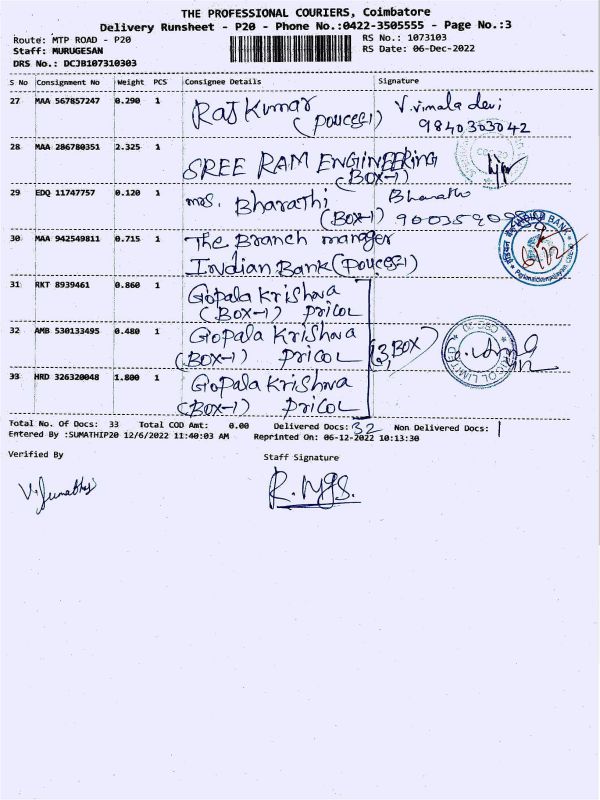 THE PROFESSIONAL COURIERS, Coimbatore
Delivery Runsheet - P20 - Phone No.:0422-3505555 - Page No.:3
Route: MTP ROAD - P20 RS No.: 1073103
Staff: MURUGESAN RS Date: 06-Dec-2022
DRS No.: DCJB107310303
S No Consignment No Weight PCS Consignee Details Signature
27 MAA 567857247 0.290 1 Raj Kumar V. Vimala devi
(POUCES1) 9840303042
28 MAA 286780351 2.325 1 SREE RAM ENGINEERING
(BOX-1)
29 EDQ 11747757 0.120 1 mrs. Bharathi
(BOX-1)
30 MAA 942549811 0.715 1 The Branch manager
Indian Bank (POUCES1)
31 RKT 8939461 0.860 1 Gopala Krishna
(BOX-1) Pricol
32 AMB 530133495 0.480 1 Gopala Krishna
(BOX-1) Pricol (3, BOX)
33 HRD 326320048 1.800 1 Gopala Krishna
(BOX-1) Pricol
Total No. Of Docs: 33 Total COD Amt: 0.00 Delivered Docs: 32 Non Delivered Docs: 1
Entered By :SUMATHIP20 12/6/2022 11:40:03 AM Reprinted On: 06-12-2022 10:13:30
Verified By Staff Signature